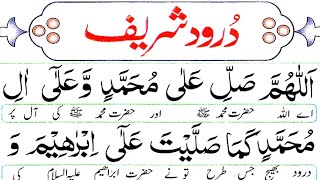 درود شریف
اَللّٰهُمَّ صَلِّ عَلٰى مُحَمَّدٍ وَّعَلٰٓى اٰلِ
اے اللہ حضرت محمد ﷺ اور حضرت محمد ﷺ کی آل پر
مُحَمَّدٍ كَمَا صَلَّيْتَ عَلٰٓى اِبْرٰهِيْمَ وَ
درود بھیج جس طرح تو نے حضرت ابراھیم علیہ السلام کی